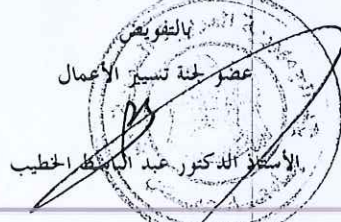 بالتفويض
عضو لجنة تسيير الأعمال
الأستاذ الدكتور عبد الباسط الخطيب